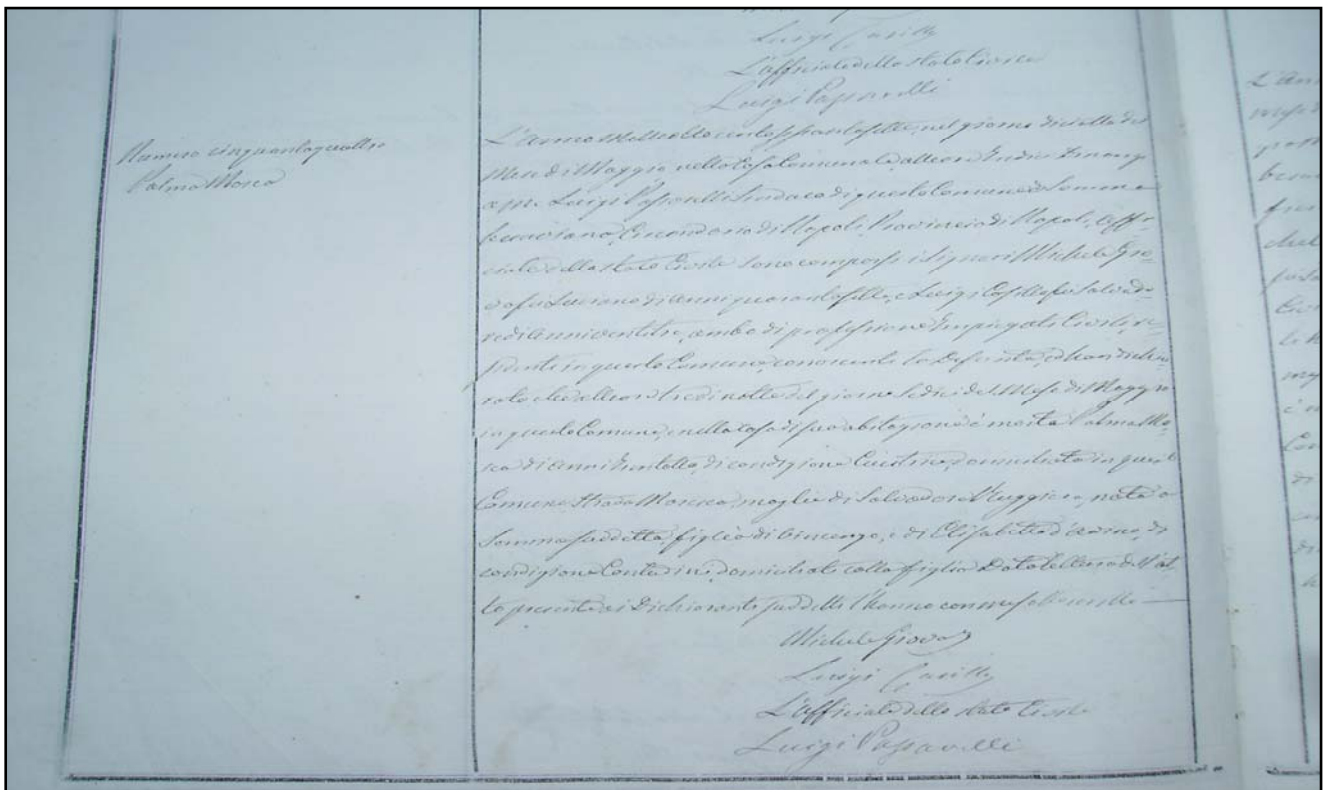 Luigi Casillo
L'affiziale dello Stato Civile
Luigi Passarelli
Numero cinquantaquattro
Palma Mosca
L'anno Milleottocentosessantasette, nel giorno diciotto del
Mese di Maggio nella Casa Comunale, alle ore
Luigi Passarelli Sindaco di questo Comune di Somma
Vesuviana, Circondario di Napoli, Provincia di Napoli, Uffi-
ciale dello Stato Civile sono comparsi i Signori Michele Gio-
va fu Luciano di anni quarantasette, e Luigi Casillo fu Salvado-
re di anni ventitre, ambo di professione Impiegati Civili, re-
sidenti in questo Comune, conoscenti la Defunta, ed han dichia-
rato che alle ore tre di notte del giorno Sedici del Mese di Maggio
in questo Comune, e nella casa di sua abitazione è morta Palma Mo-
sca di anni trentotto, di condizione domiciliata in questo
Comune Strada moglie di Salvadore Ruggiero, nata a
Somma suddetta, figlia di Vincenzo, e di Elisabetta d'
condizione Contadini, domiciliati colla figlia. Data lettura dell'at-
to presente ai Dichiaranti suddetti l'hanno con me sottoscritto
Michele Giova
Luigi Casillo
L'affiziale dello Stato Civile
Luigi Passarelli